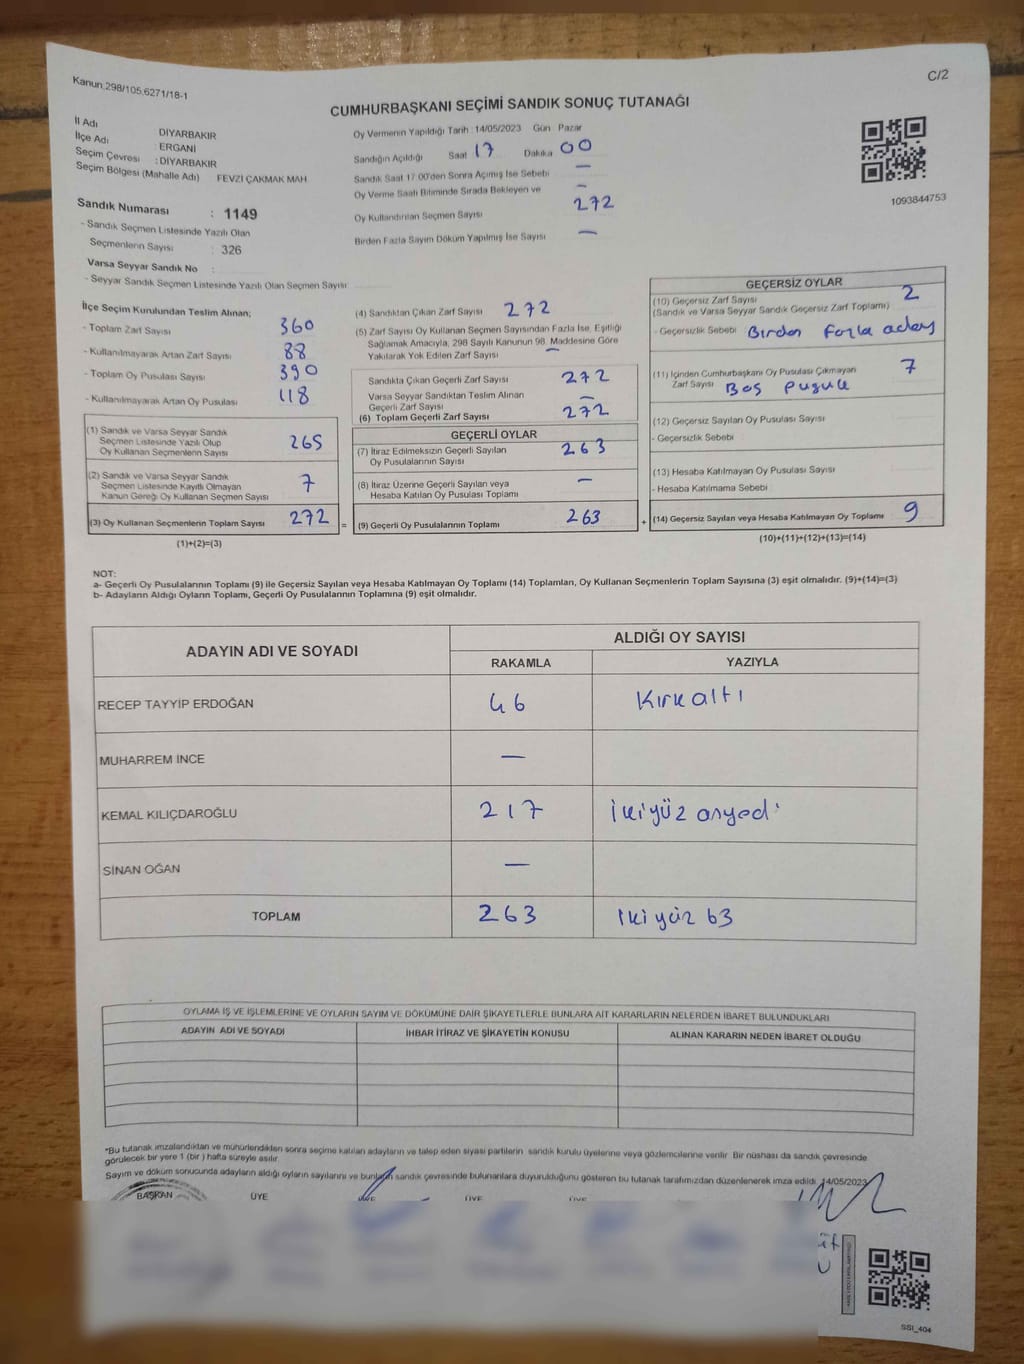 Kanun.298/105,6271/18-1
C/2
CUMHURBAŞKANI SEÇİMİ SANDIK SONUÇ TUTANAĞI
İl Adı DİYARBAKIR
İlçe Adı : ERGANİ
Seçim Çevresi : DİYARBAKIR
Seçim Bölgesi (Mahalle Adı) FEVZİ ÇAKMAK MAH.
Sandık Numarası : 1149
- Sandık Seçmen Listesinde Yazılı Olan
Seçmenlerin Sayısı : 326
Varsa Seyyar Sandık No :
- Seyyar Sandık Seçmen Listesinde Yazılı Olan Seçmen Sayısı:
Oy Vermenin Yapıldığı Tarih : 14/05/2023 Gün Pazar
Sandığın Açıldığı Saat 17 Dakika 00
Sandık Saat 17:00'den Sonra Açımış İse Sebebi —
Oy Verme Saati Bitiminde Sırada Bekleyen ve —
Oy Kullandırılan Seçmen Sayısı 272
Birden Fazla Sayım Döküm Yapılmış İse Sayısı —
1093844753
İlçe Seçim Kurulundan Teslim Alınan;
- Toplam Zarf Sayısı 360
- Kullanılmayarak Artan Zarf Sayısı 88
- Toplam Oy Pusulası Sayısı 390
- Kullanılmayarak Artan Oy Pusulası 118
(1) Sandık ve Varsa Seyyar Sandık
Seçmen Listesinde Yazılı Olup
Oy Kullanan Seçmenlerin Sayısı 265
(2) Sandık ve Varsa Seyyar Sandık
Seçmen Listesinde Kayıtlı Olmayan
Kanun Gereği Oy Kullanan Seçmen Sayısı 7
(3) Oy Kullanan Seçmenlerin Toplam Sayısı 272 =
(1)+(2)=(3)
(4) Sandıktan Çıkan Zarf Sayısı 272
(5) Zarf Sayısı Oy Kullanan Seçmen Sayısından Fazla İse, Eşitliği
Sağlamak Amacıyla, 298 Sayılı Kanunun 98. Maddesine Göre
Yakılarak Yok Edilen Zarf Sayısı —
Sandıkta Çıkan Geçerli Zarf Sayısı 272
Varsa Seyyar Sandıktan Teslim Alınan
Geçerli Zarf Sayısı —
(6) Toplam Geçerli Zarf Sayısı 272
GEÇERLİ OYLAR
(7) İtiraz Edilmeksizin Geçerli Sayılan
Oy Pusulalarının Sayısı 263
(8) İtiraz Üzerine Geçerli Sayılan veya
Hesaba Katılan Oy Pusulası Toplamı —
(9) Geçerli Oy Pusulalarının Toplamı 263 +
GEÇERSİZ OYLAR
(10) Geçersiz Zarf Sayısı
(Sandık ve Varsa Seyyar Sandık Geçersiz Zarf Toplamı) 2
- Geçersizlik Sebebi Birden Fazla aday
(11) İçinden Cumhurbaşkanı Oy Pusulası Çıkmayan
Zarf Sayısı Boş pusula 7
(12) Geçersiz Sayılan Oy Pusulası Sayısı
- Geçersizlik Sebebi
(13) Hesaba Katılmayan Oy Pusulası Sayısı
- Hesaba Katılmama Sebebi
(14) Geçersiz Sayılan veya Hesaba Katılmayan Oy Toplamı 9
(10)+(11)+(12)+(13)=(14)
NOT:
a- Geçerli Oy Pusulalarının Toplamı (9) ile Geçersiz Sayılan veya Hesaba Katılmayan Oy Toplamı (14) Toplamları, Oy Kullanan Seçmenlerin Toplam Sayısına (3) eşit olmalıdır. (9)+(14)=(3)
b- Adayların Aldığı Oyların Toplamı, Geçerli Oy Pusulalarının Toplamına (9) eşit olmalıdır.
ADAYIN ADI VE SOYADI ALDIĞI OY SAYISI
RAKAMLA YAZIYLA
RECEP TAYYİP ERDOĞAN 46 Kırkaltı
MUHARREM İNCE —
KEMAL KILIÇDAROĞLU 217 İkiyüz onyedi
SİNAN OĞAN —
TOPLAM 263 İkiyüz 63
OYLAMA İŞ VE İŞLEMLERİNE VE OYLARIN SAYIM VE DÖKÜMÜNE DAİR ŞİKAYETLERLE BUNLARA AİT KARARLARIN NELERDEN İBARET BULUNDUKLARI
ADAYIN ADI VE SOYADI İHBAR İTİRAZ VE ŞİKAYETİN KONUSU ALINAN KARARIN NEDEN İBARET OLDUĞU
*Bu tutanak imzalandıktan ve mühürlendikten sonra seçime katılan adayların ve talep eden siyasi partilerin sandık kurulu üyelerine veya gözlemcilerine verilir. Bir nüshası da sandık çevresinde
görülecek bir yere 1 (bir ) hafta süreyle asılır.
Sayım ve döküm sonucunda adayların aldığı oyların sayılarını ve bunların sandık çevresinde bulunanlara duyurulduğunu gösteren bu tutanak tarafımızdan düzenlenerek imza edildi. 14/05/2023
BAŞKAN ÜYE ÜYE ÜYE ÜYE
SSI_404